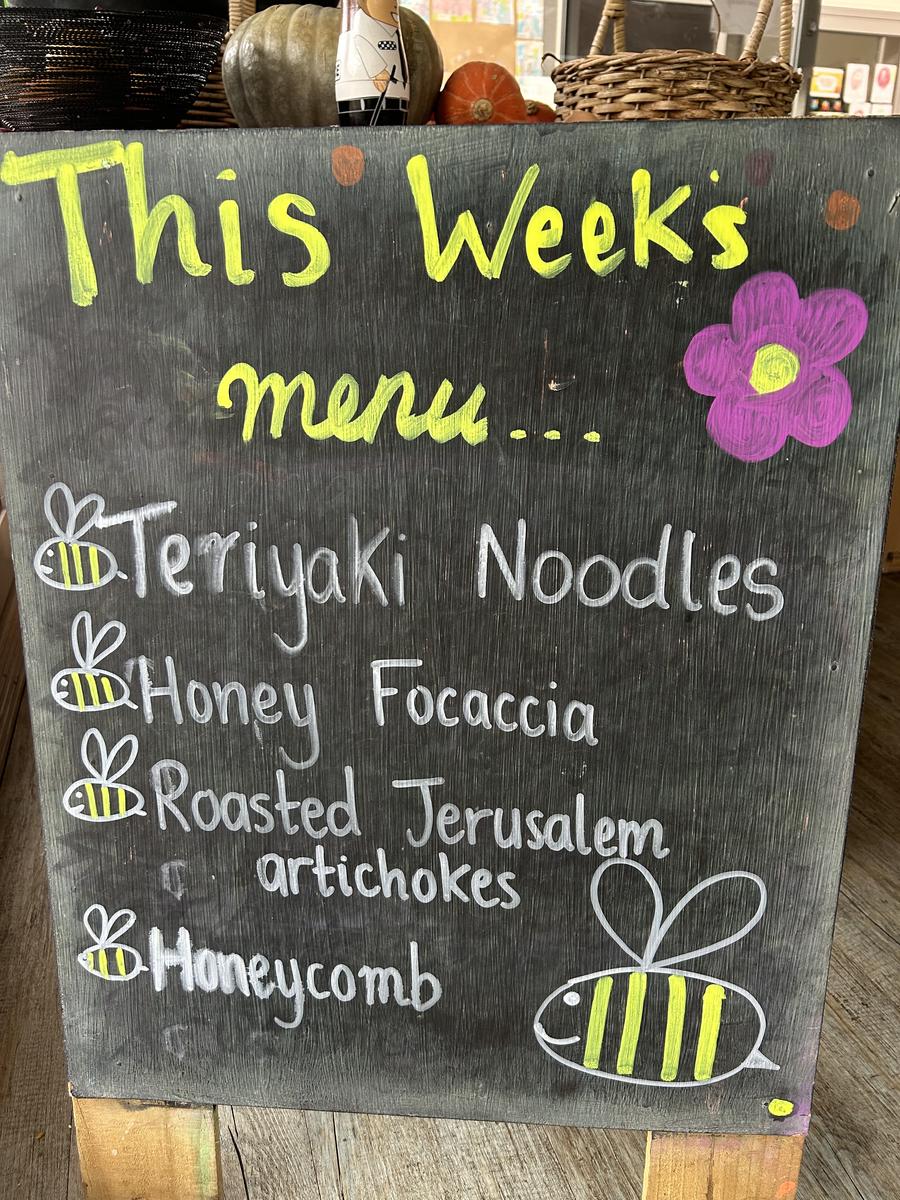 This Week's
menu...
Teriyaki Noodles
Honey Focaccia
Roasted Jerusalem
artichokes
Honeycomb